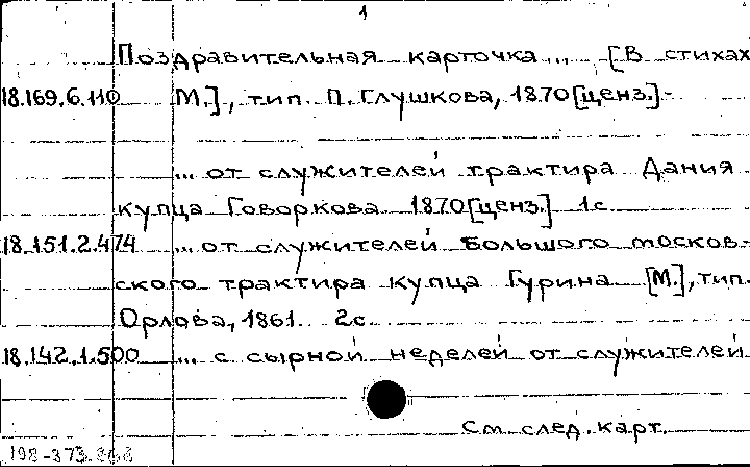 1
Поздравительная карточка ... [В стихах
18.169.6.110 М.], тип. П. Глушкова, 1870[ценз.]-
... от служителей трактира Дания
купца Говоркова 1870[ценз.] 1с
18.151.2.474 ... от служителей Большого москов-
ского трактира купца Гурина [М.], тип.
Орлова, 1861 2с
18.142.1.500 ... с сырной неделей от служителей
См. след. карт.